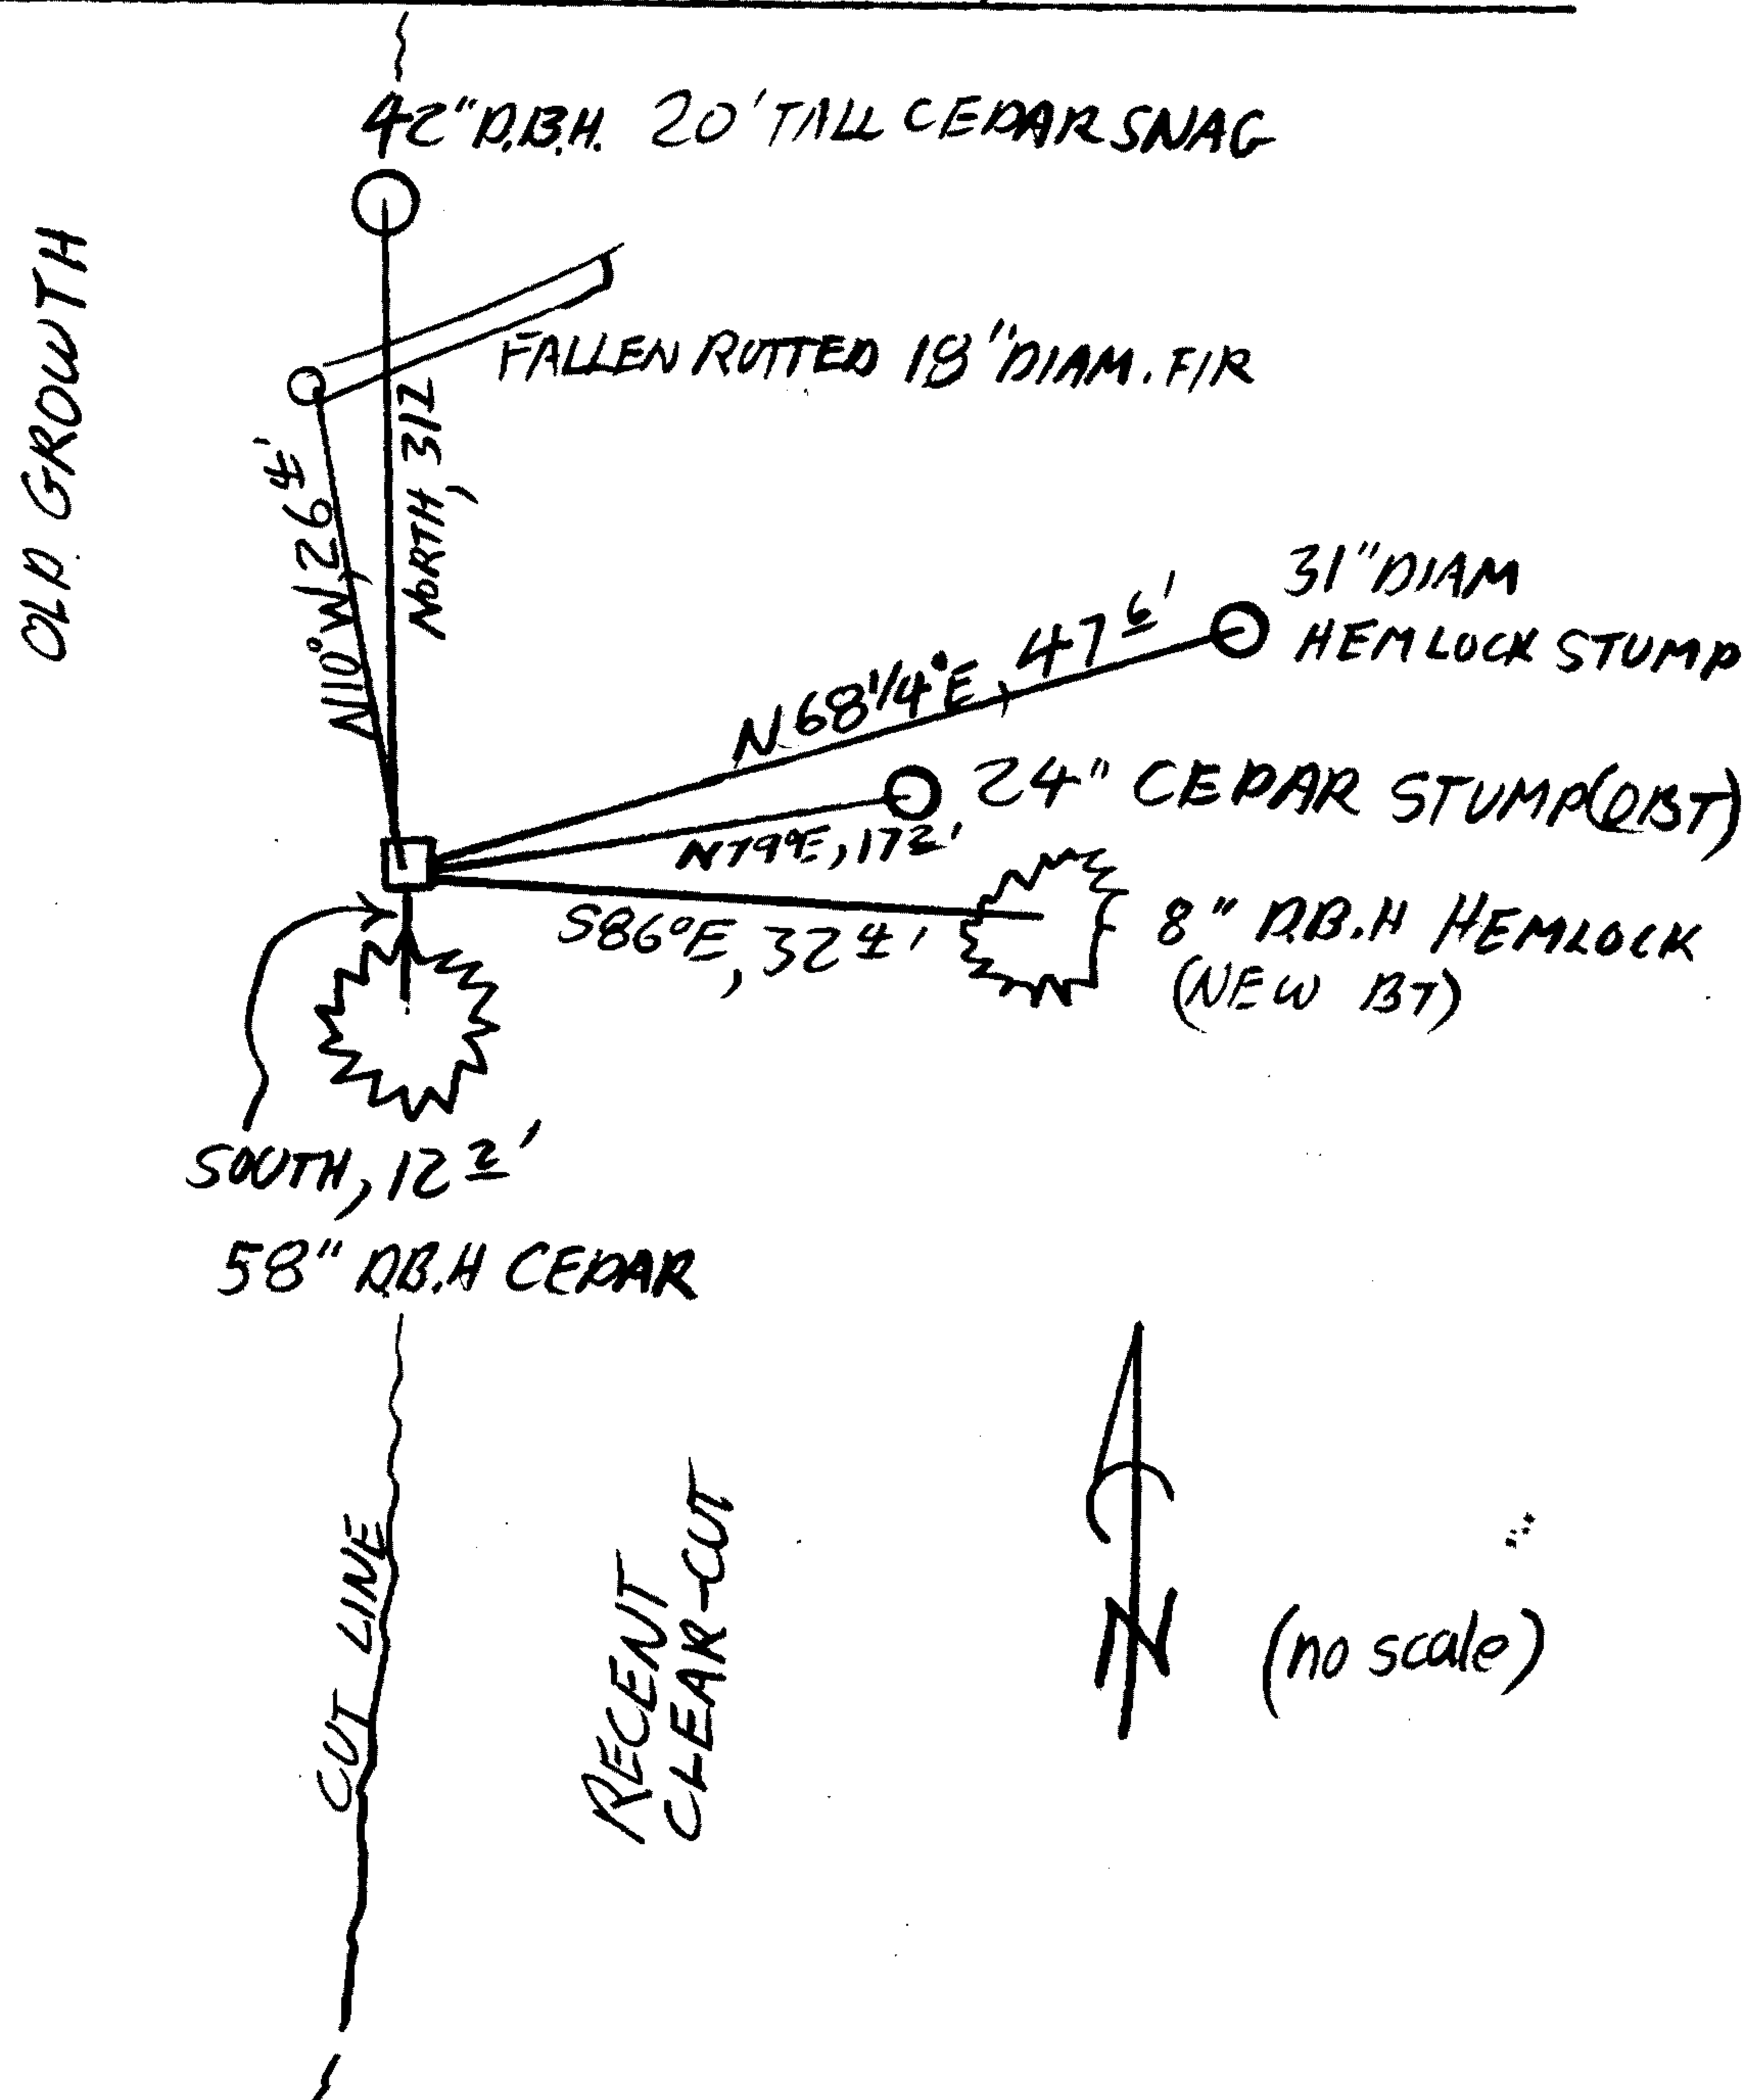 42" D.B.H. 20' TALL CEDAR SNAG
OLD GROWTH
FALLEN ROTTED 18" DIAM. FIR
N10°W, 26 4'
NORTH, 31
31" DIAM
HEMLOCK STUMP
N 68 1/4°E, 47 6'
24" CEDAR STUMP (OBT)
N79°E, 17 2'
S86°E, 32 4'
8" D.B.H HEMLOCK
(NEW BT)
SOUTH, 12 2'
58" D.B.H CEDAR
CUT LINE
RECENT
CLEAR-CUT
N
(no scale)